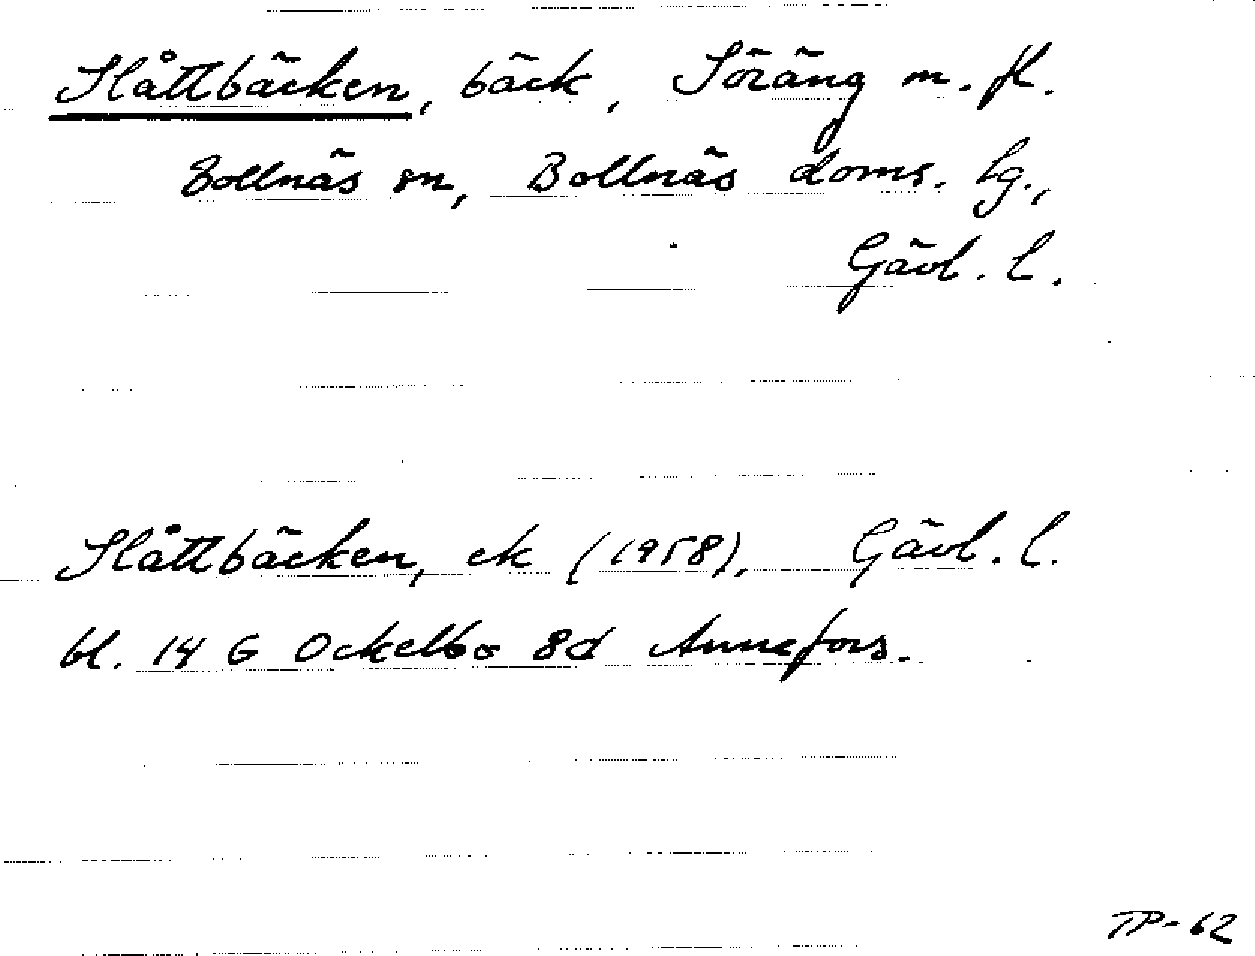 Slåttbäcken, bäck, Söräng m. fl.
Bollnäs sn, Bollnäs doms. lg.,
Gävl. l.
Slåttbäcken, ek (1958), Gävl. l.
bl. 14 G Ockelbo 8d Annefors.
TP-62